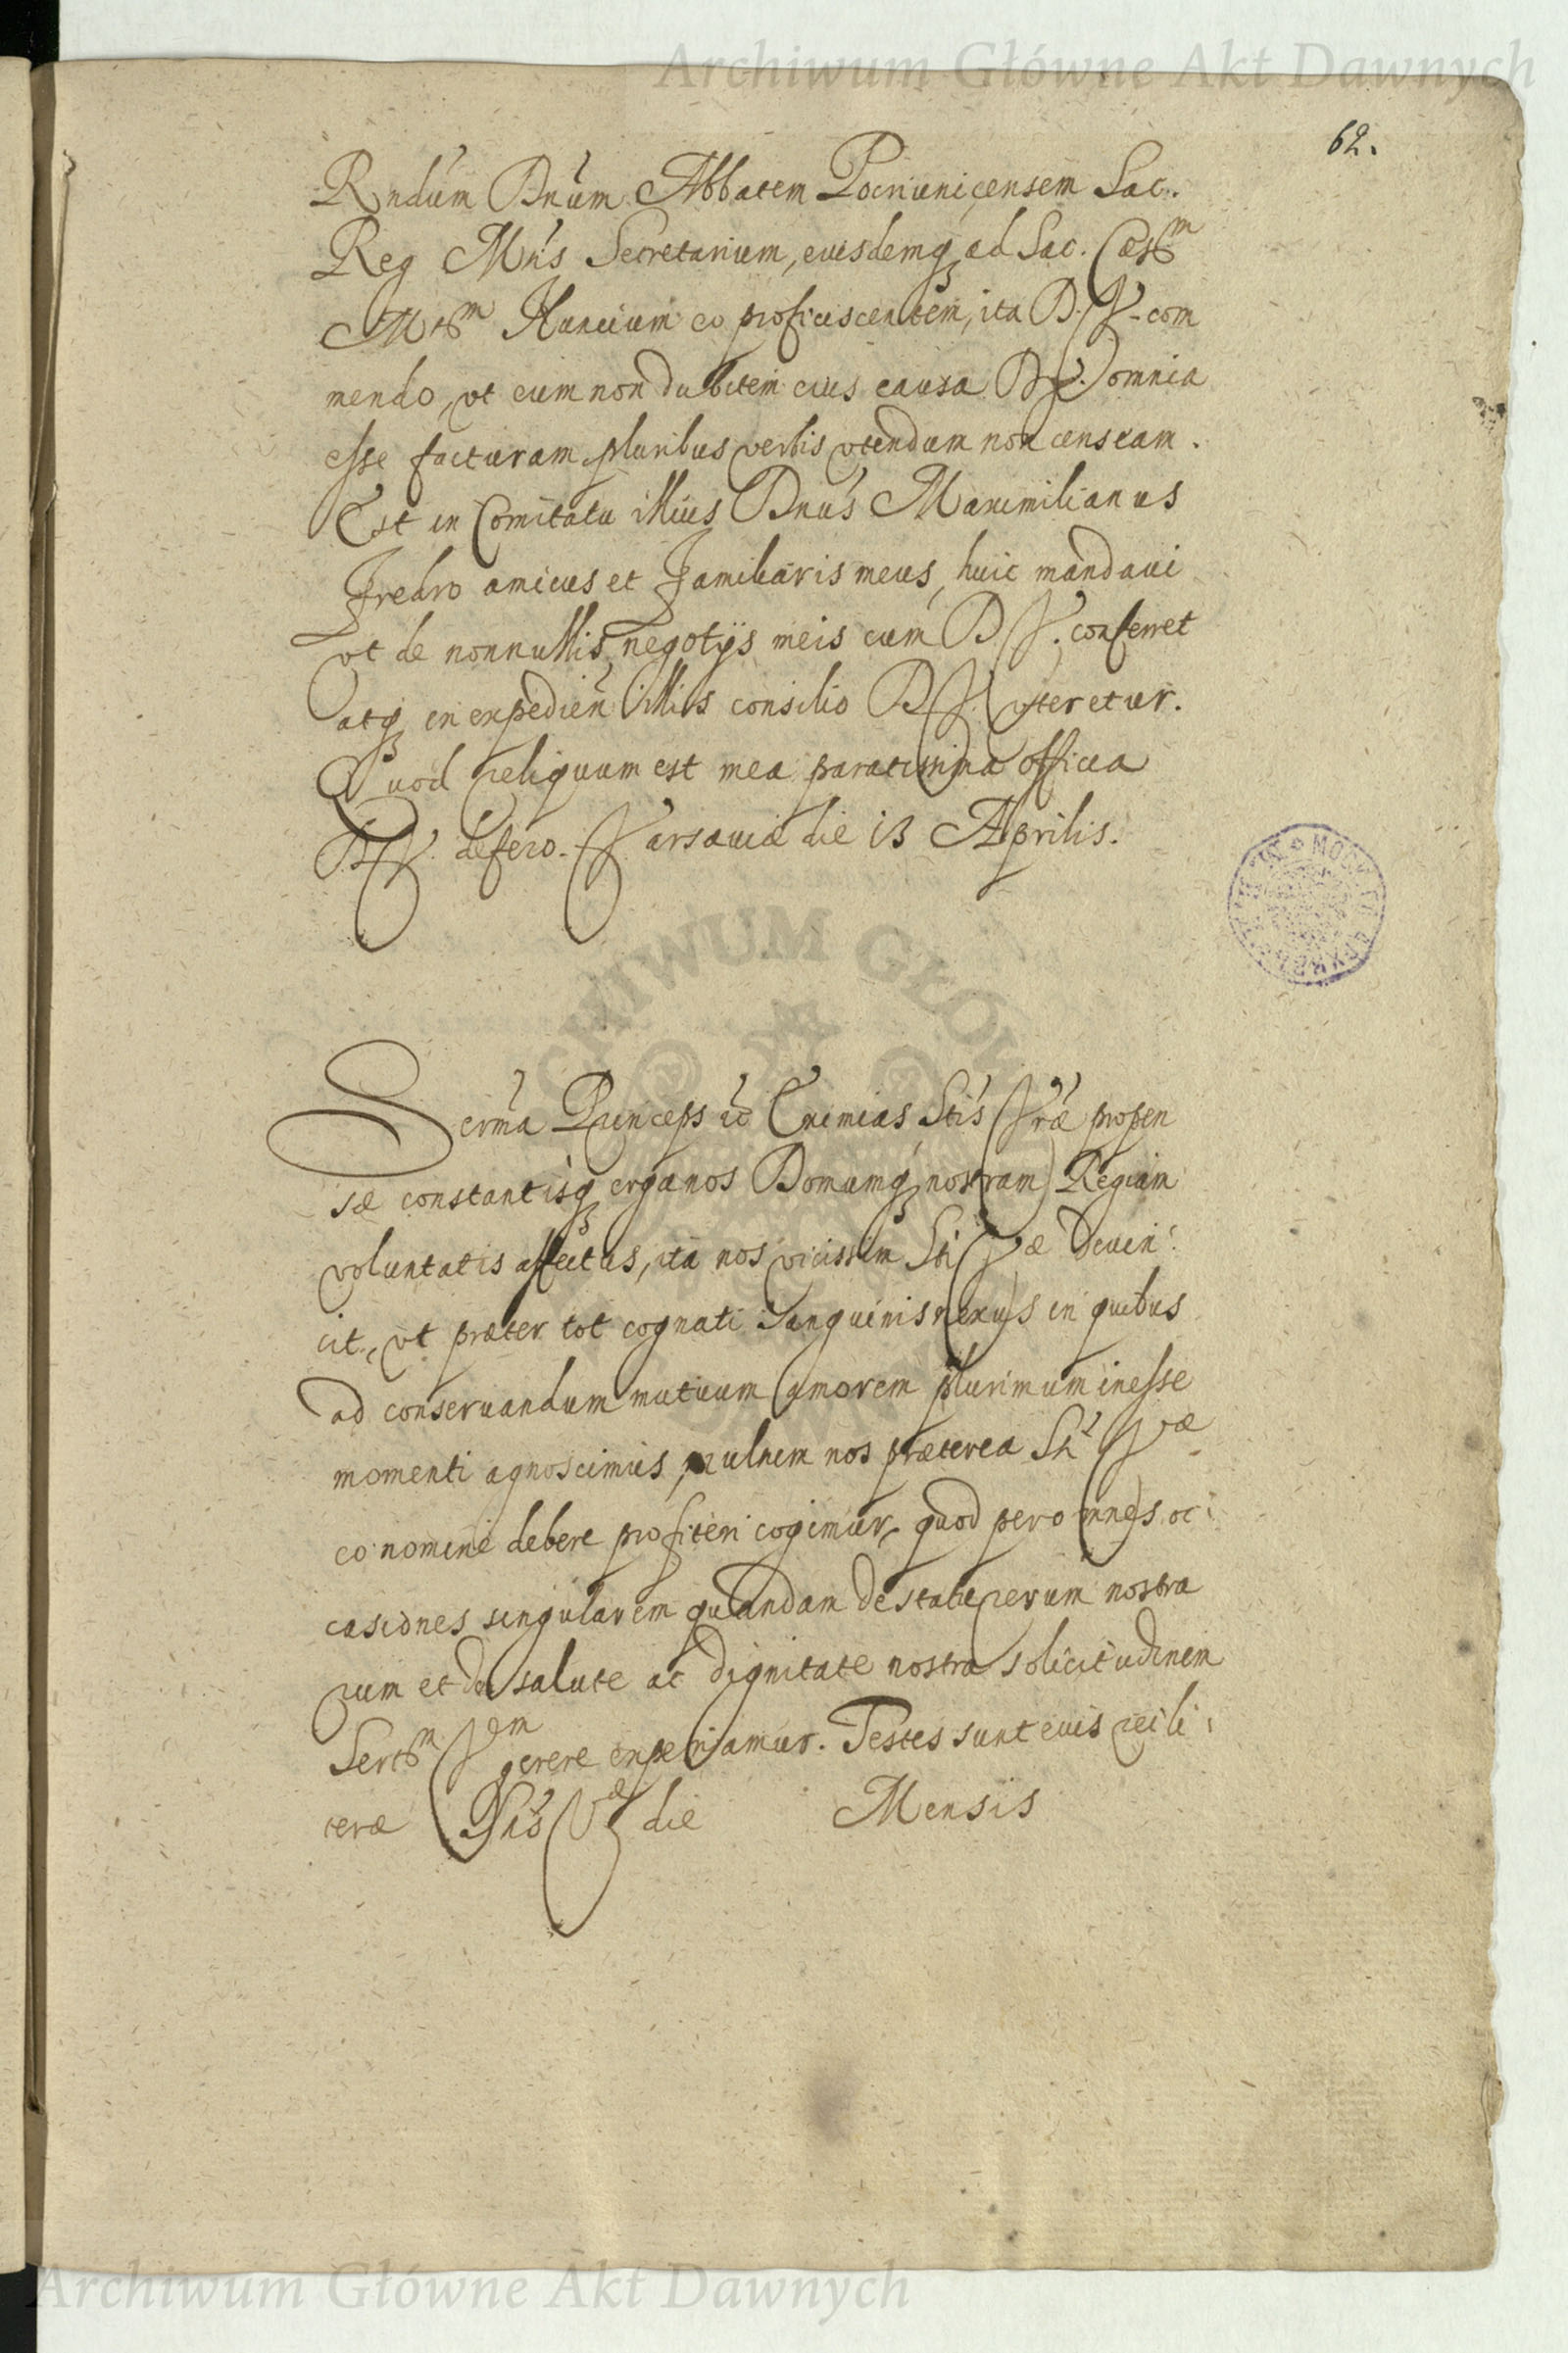 Archiwum Główne Akt Dawnych
62.
Rndum Dnum Abbatem Sac.
Reg Mtis Secretarium, eiusdemq ad Sac. Caesm
Mtem Nuncium eo proficiscentem, ita D. V. com
mendo, vt cum non dubitem eius causa D V. omnia
esse facturam, pluribus verbis vtendum non censeam.
Est in Comitatu illius Dnus Maximilianus
Fredro amicus et Familiaris meus, huic mandaui
vt de nonnullis negotijs meis cum D. V. conferret
atq in expedien illis consilio D V. vteretur.
Quod reliquum est mea paratissima officia
D. V. defero. Varsauiæ die 13 Aprilis.
Serma Princeps Eximias Stis Vræ propen
sæ constantisq erga nos Domumq nostram Regiam
voluntatis affectus, ita nos vicissim Sti Væ deuin
cit, vt præter tot cognati sanguinis nexus in quibus
ad conseruandum mutuum amorem plurimum inesse
momenti agnoscimus, nos præterea Sti Væ
eo nomine debere profiteri cogimur, quod per omnes oc
casiones singularem quandam de statu rerum nostra
rum et de salute ac dignitate nostra solicitudinem
Sertem Vam gerere experiamur. Testes sunt eius rei li
teræ Stis Væ die Mensis
Archiwum Główne Akt Dawnych